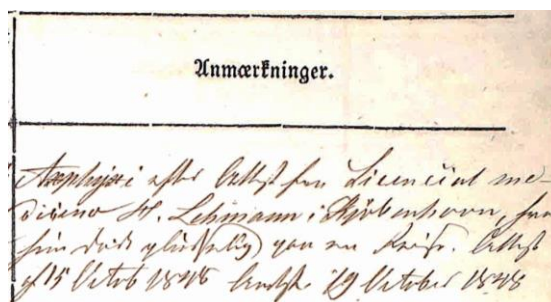 Anmærkninger.
Asphyxi efter Attest fra Licenciat me-
dicinæ H. Lehmann i Kjöbenhavn, hvor
hun döde pludselig paa en Reise. Attest
af 15 Octob 1848 19 October 1848